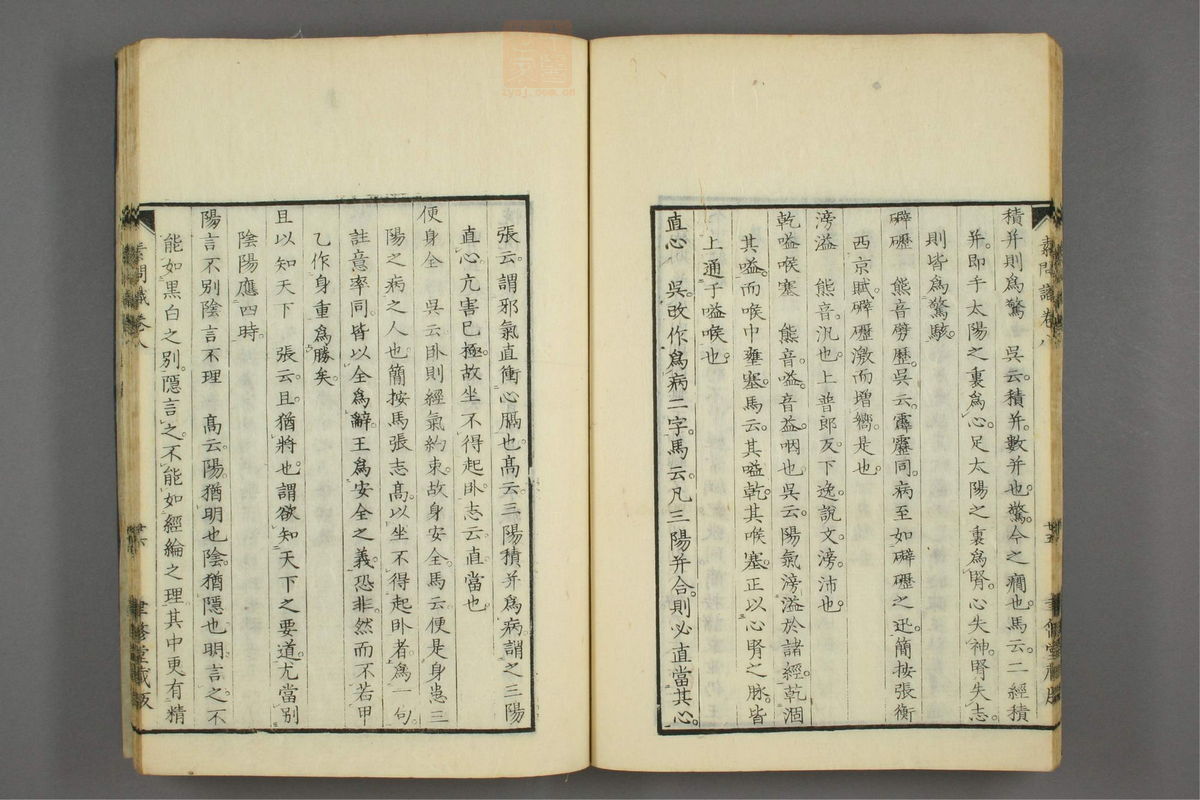 素問識卷八
廿五
聿修堂藏版
積并則爲驚　吳云積并數并也驚今之癎也馬云二經積
并即手太陽之裏爲心足太陽之裏爲腎心失神腎失志
則皆爲驚駭
礔礰　熊音劈歷吳云霹靂同病至如礔礰之迅簡按張衡
西京賦礔礰激而增嚮是也
滂溢　熊音汎也上普郎反下逸說文滂沛也
乾嗌喉塞　熊音嗌音益咽也吳云陽氣滂溢於諸經乾涸
其嗌而喉中壅塞馬云其嗌乾其喉塞正以心腎之脉皆
上通于嗌喉也
直心　吳改作爲病二字馬云凡三陽并合則必直當其心
張云謂邪氣直衝心膈也高云三陽積并爲病謂之三陽
直心亢害已極故坐不得起卧志云直當也
便身全　吳云卧則經氣約束故身安全馬云便是身患三
陽之病之人也簡按馬張志高以坐不得起卧者爲一句
註意率同皆以全爲辭王爲安全之義恐非然而不若甲
乙作身重爲勝矣
且以知天下　張云且猶將也謂欲知天下之要道尤當別
陰陽應四時
陽言不別陰言不理　高云陽猶明也陰猶隱也明言之不
能如黑白之別隱言之不能如經綸之理其中更有精
素問識卷八
廿六
聿修堂藏版